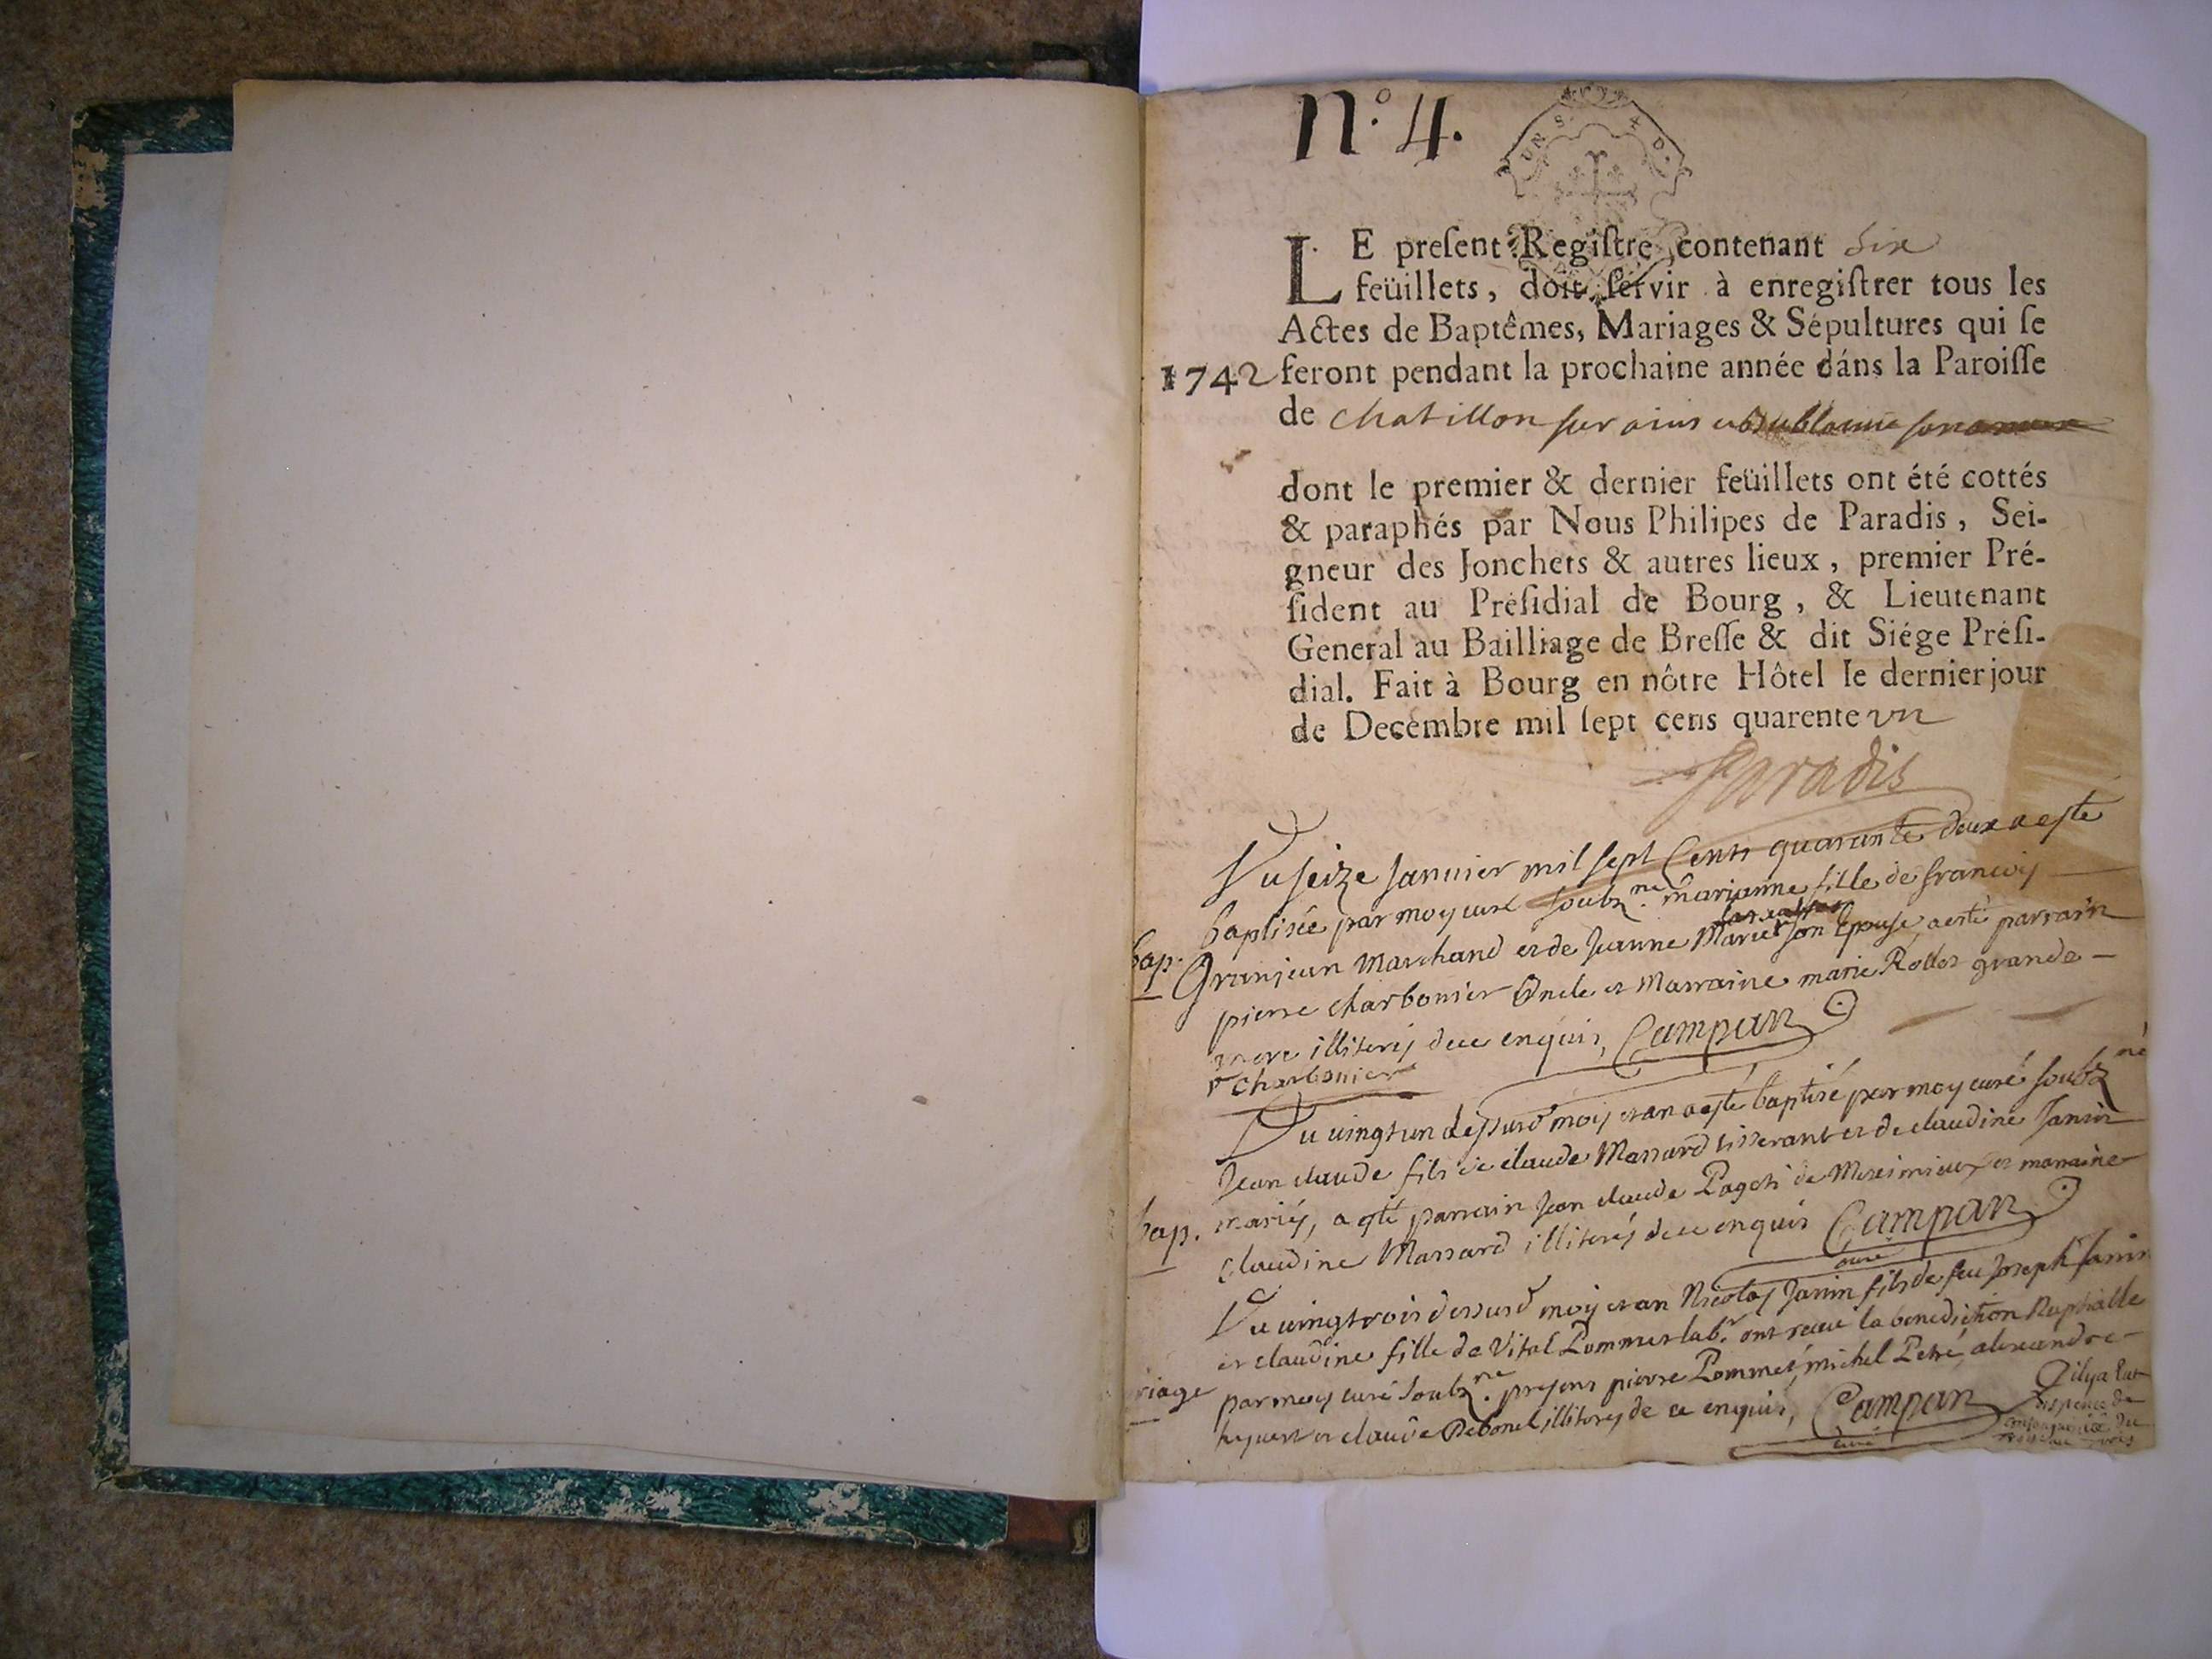 N.º 4.
LE preſent Regiſtre contenant six
feüillets, doit ſervir à enregiſtrer tous les
Actes de Baptêmes, Mariages & Sépultures qui ſe
1742 feront pendant la prochaine année dáns la Paroiſſe
de chatillon sur
dont le premier & dernier feüillets ont été cottés
& paraphés par Nous Philipes de Paradis, Sei-
gneur des Jonchets & autres lieux, premier Pré-
ſident au Préſidial de Bourg, & Lieutenant
General au Bailliage de Breſſe & dit Siége Préſi-
dial. Fait à Bourg en nôtre Hôtel le dernier jour
de Decembre mil ſept cens quarente un
Paradis
Du seize Janvier mil sept Cents quarante deux a esté
baptisée par moy curé soubz.né marianne fille de francois
bap. Granjean Marchand et de Jeanne Marie son Epouse, a esté parrain
pierre charbonier Oncle et Marraine marie Rollet grande
mere illiterés de ce enquis, Campan
P charbonier
Du vingt un dessusd moy et an a esté baptisé par moy curé soubzné
Jean claude fils de claude Massard tisserant et de claudine Janin
bap. mariés, a esté parrain Jean claude Pagoti de Meximieux et marraine
claudine Massard illiterés de ce enquis Campan
curé
Du vingt trois dessusd moy et an Nicolas Janin fils de feu Joseph Janin
et claudine fille de Vital Pommet lab.r ont receu la benediction Nuptialle
riage par moy curé soubz.né presens pierre Pommet, michel Petré, alexandre
et claude Debonel illiterés de ce enquis, Campan
curé
Qil y a Eut
dispence de
consanguinité du